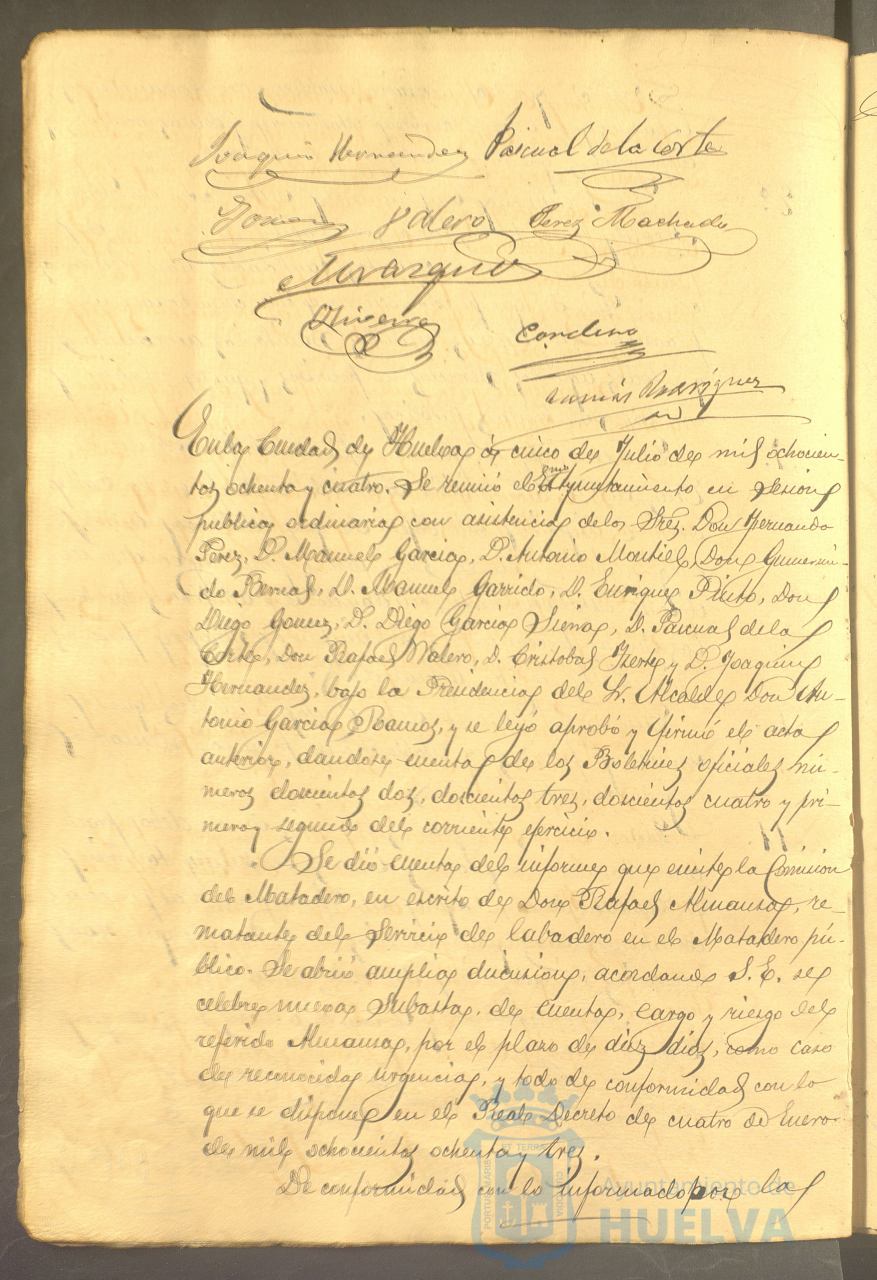 Joaquin Hernandez Pascual de la Corte
Valero Perez Machado
Cordero
Tomás Rodriguez
En la Ciudad de Huelva á cinco de Julio de mil ochocien-
tos ochenta y cuatro. Se reunió el Exmo Ayuntamiento en Sesion
publica ordinaria con asistencia de los Sres. Don Fernando
Perez, D. Manuel Garcia, D. Antonio Montiel, Don Gumersin-
do Bernal, D. Manuel Garrido, D. Enrique Pinto, Don
Diego Gomez, D. Diego Garcia Sierra, D. Pascual de la
Corte, Don Rafael Valero, D. Cristobal y D. Joaquin
Hernandez, bajo la Presidencia del Sr. Alcalde Don An-
tonio Garcia Ramos, y se leyó aprobó y firmó el acta
anterior, dandose cuenta de los Boletines oficiales nú-
meros doscientos dos, doscientos tres, doscientos cuatro y pri-
mero y segundo del corriente ejercicio.
Se dió cuenta del informe que emite la Comision
del Matadero, en escrito de Don Rafael Almansa, re-
matante del Servicio de labadero en el Matadero pú-
blico. Se abrió amplia discusion, acordando S. E. se
celebre nueva Subasta, de cuenta, cargo y riesgo del
referido Almansa, por el plazo de diez dias, como caso
de reconocida urgencia, y todo de conformidad con lo
que se dispone en el Real Decreto de cuatro de Enero
de mil ochocientos ochenta y tres.
De conformidad con lo informado por la
Ayuntamiento de
HUELVA